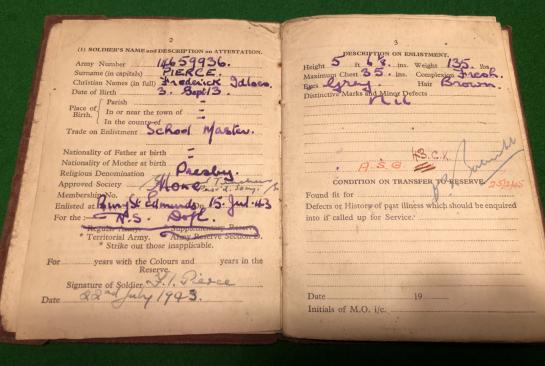 2
(1) SOLDIER'S NAME and DESCRIPTION on ATTESTATION.
Army Number 14659936.
Surname (in capitals) PIERCE.
Christian Names (in full) Frederick
Date of Birth 3. Sept 13.
Place of Birth.
Parish -
In or near the town of -
In the county of -
Trade on Enlistment School Master.
Nationality of Father at birth -
Nationality of Mother at birth -
Religious Denomination Presby.
Approved Society
Membership No.
Enlisted at Bury St. Edmunds On 15. Jul. 43
For the :- N.S. D of E.
* Regular Army. Supplementary Reserve.
* Territorial Army. Army Reserve Section D.
* Strike out those inapplicable.
For years with the Colours and years in the
Reserve.
Signature of Soldier F. I. Pierce
Date 22nd July 1943.
3
DESCRIPTION ON ENLISTMENT.
Height 5 ft. 6 ins. Weight 135. lbs
Maximum Chest 35. ins. Complexion Fresh.
Eyes Grey. Hair Brown.
Distinctive Marks and Minor Defects
Nil
A.S.G.
CONDITION ON TRANSFER TO RESERVE.
Found fit for
Defects or History of past illness which should be enquired
into if called up for Service.
Date 19
Initials of M.O. i/c.